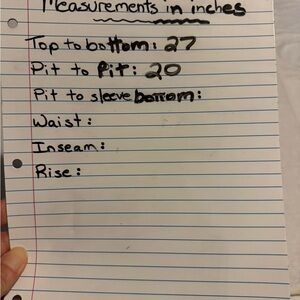 Measurements in inches
Top to bottom: 27
Pit to Pit: 20
Pit to sleeve bottom:
Waist:
Inseam:
Rise: